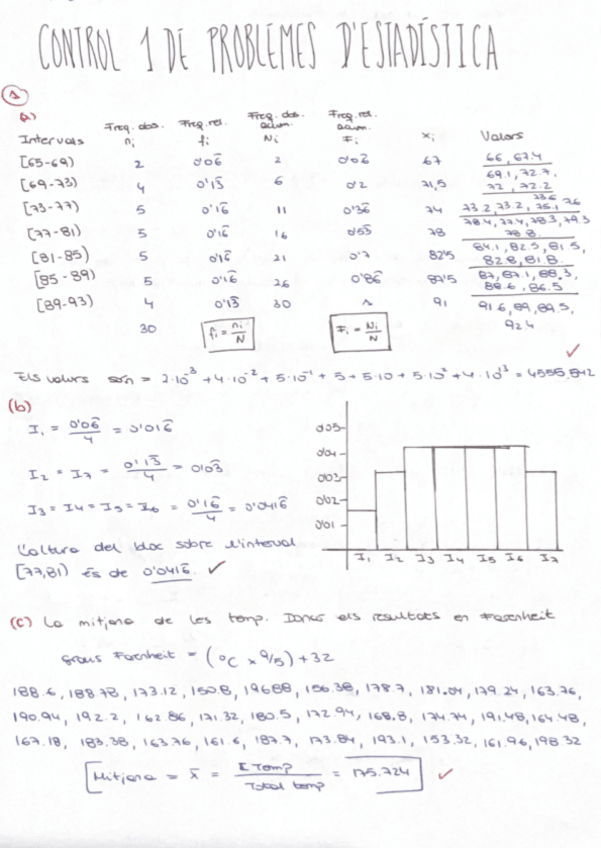 CONTROL 1 DE PROBLEMES D'ESTADÍSTICA
1
a)
Intervals Freq. abs. ni Freq. rel. fi Freq. abs. acum. Ni Freq. rel. acum. Fi xi Valors
[65-69) 2 0'06 2 0'06 67 66, 67.4
[69-73) 4 0'13 6 0'2 71,5 69.1, 72.7, 72, 72.2
[73-77) 5 0'16 11 0'36 74 73.2, 73.2, 75.1, 76
[77-81) 5 0'16 16 0'53 78 78.4, 77.4, 78.3, 79.3 78.8
[81-85) 5 0'16 21 0'7 82'5 84.1, 82.5, 81.5, 82.8, 81.8
[85-89) 5 0'16 26 0'86 87'5 87, 87.1, 88.3, 88.6, 86.5
[89-93) 4 0'13 30 1 91 91.6, 89, 89.5, 92.4
30 fi = ni/N Fi = Ni/N
Els valors són = 2·10⁻³ + 4·10⁻² + 5·10⁻¹ + 5 + 5·10 + 5·10² + 4·10³ = 4555,542
(b)
I1 = 0'06/4 = 0'016
I2 = I7 = 0'13/4 = 0'03
I3 = I4 = I5 = I6 = 0'16/4 = 0'0416
L'altura del bloc sobre l'interval
[77,81) és de 0'0416
0'05
0'04
0'03
0'02
0'01
I1 I2 I3 I4 I5 I6 I7
(c) La mitjana de les temp. Doneu els resultats en Farenheit
graus Farenheit = (ºC x 9/5) + 32
188.6, 188.78, 173.12, 150.8, 196.88, 156.38, 178.7, 181.04, 179.24, 163.76,
190.94, 192.2, 162.86, 171.32, 180.5, 172.94, 168.8, 174.74, 191.48, 164.48,
167.18, 183.38, 163.76, 161.6, 187.7, 173.84, 193.1, 153.32, 161.96, 198.32
Mitjana = x̄ = Σ Temp / Total temp = 175.724